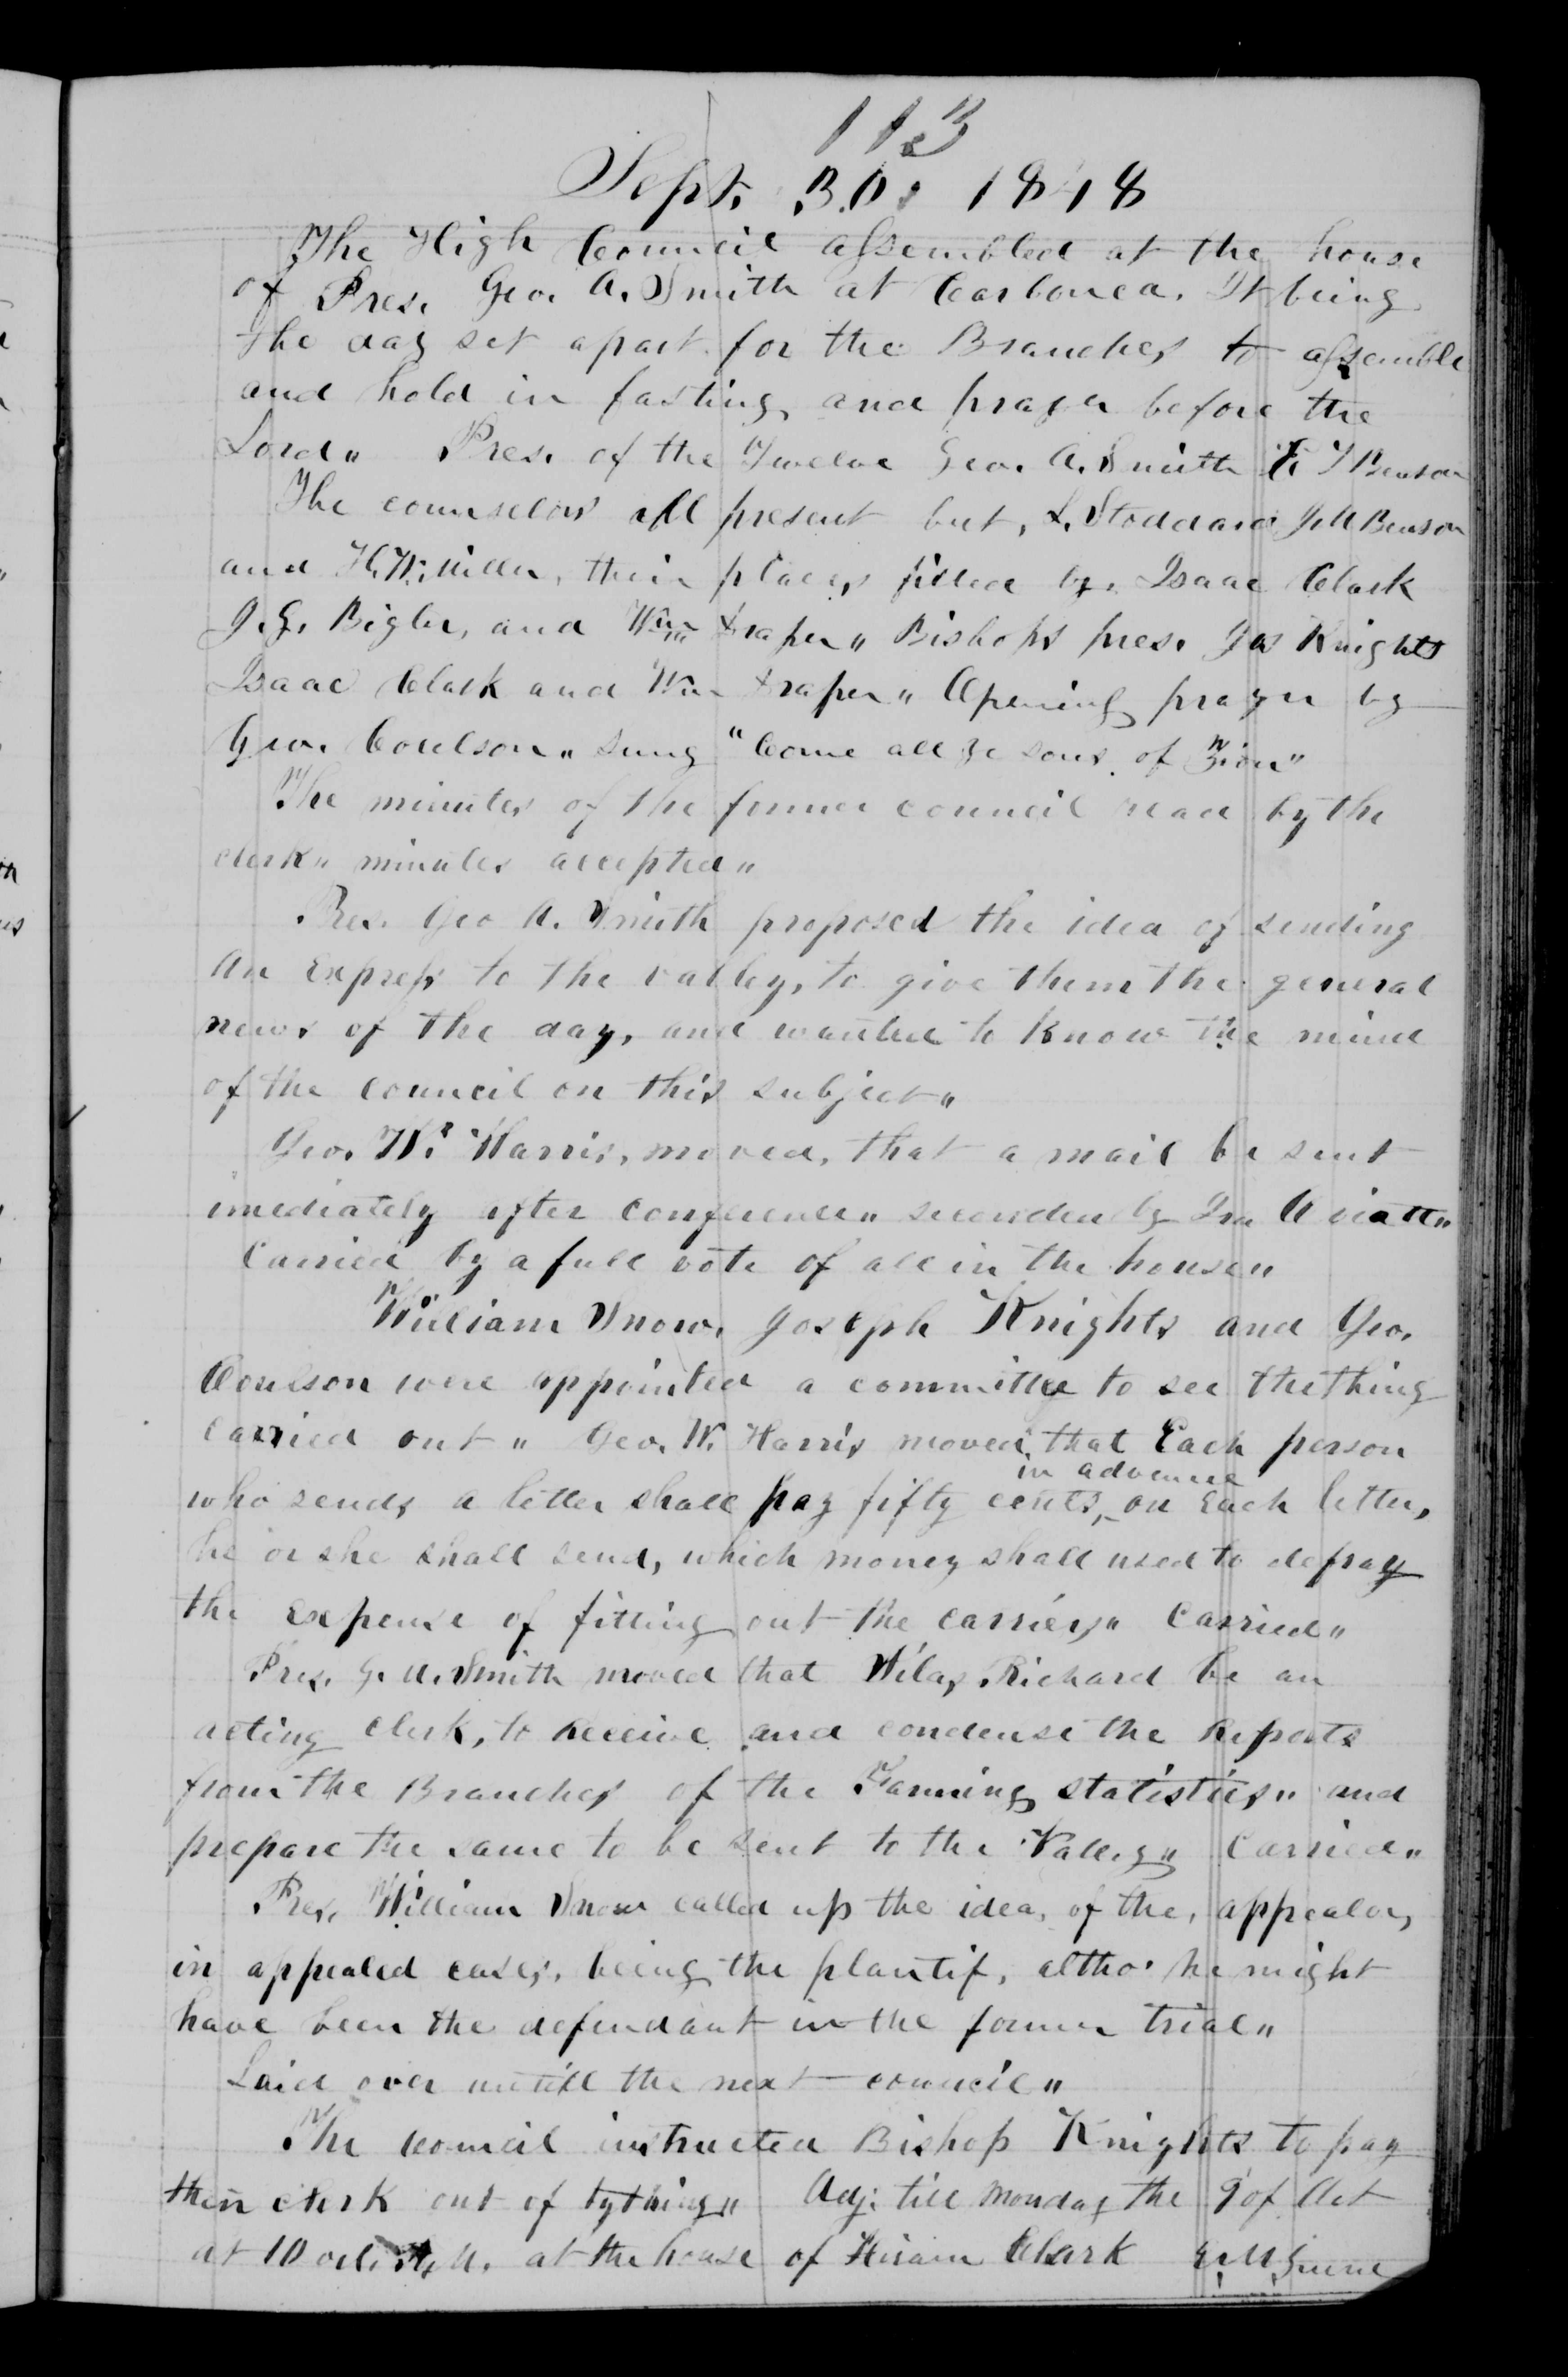 113
Sept. 30. 1848
The High Council assembled at the house
of Pres. Geo. A. Smith at Carbonca. It being
the day set apart for the Branches to assemble
and hold in fasting, and prayer before the
Lord" Pres. of the Twelve Geo. A. Smith E T Benson
The counselors all present but, L. Stoddard J. M Benson
and H. W. Miller, their places filled by. Isaac Clark
J. G. Bigler, and Wm Draper" Bishops pres. Jos Knights
Isaac Clark and Wm Draper" Opening prayer by
Geo. Coulson" Sung "Come all ye sons of Zion"
The minutes of the former council read by the
clerk" minutes accepted"
Pres. Geo A. Smith proposed the idea of sending
an express to the valley, to give them the general
news of the day, and wanted to know the mind
of the council on this subject"
Geo. W. Harris, moved, that a mail be sent
imediately after conference" seconded by Ira Oviatt"
Carried by a full vote of all in the house"
William Snow. Joseph Knights and Geo.
Coulson were appointed a committee to see the thing
carried out" Geo. W. Harris moved, that Each person
in advance
who sends a letter shall pay fifty cents, on Each letter,
he or she shall send, which money shall used to defray
the expense of fitting out the carriers" Carried"
Pres. G. A. Smith moved that Silas Richard be an
acting clerk, to receive and condense the Reports
from the Branches of the Farming statistics" and
prepare the same to be sent to the Valley" Carried"
Pres. William Snow called up the idea, of the, appealor,
in appealed cases, being the plantif, altho' he might
have been the defendant in the former trial"
Laid over untill the next council"
The council instructed Bishop Knights to pay
their clerk out of tything" Adj. till Monday the 9 of Oct
at 10 at the house of Hiram Clark